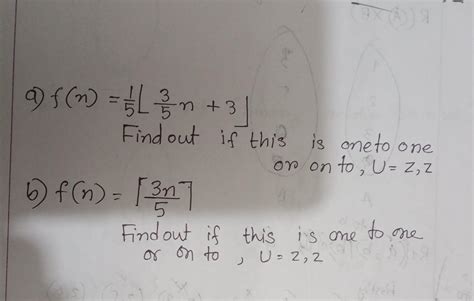 a) f(n) = 1/5 ⌊ 3/5 n + 3 ⌋
Find out if this is one to one
or on to, U = Z, Z
b) f(n) = ⌈ 3n/5 ⌉
Find out if this is one to one
or on to, U = Z, Z